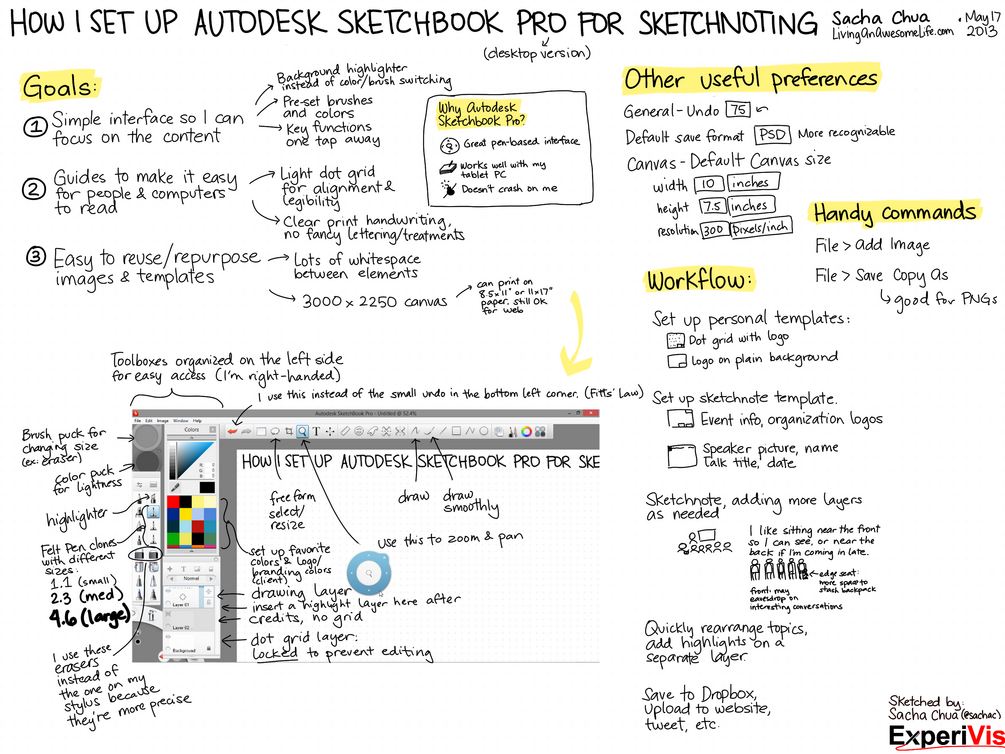 HOW I SET UP AUTODESK SKETCHBOOK PRO FOR SKETCHNOTING
(desktop version)
Sacha Chua
LivingAnAwesomeLife.com
• May 17
2013
Goals:
① Simple interface so I can
focus on the content
Background highlighter
instead of color/brush switching
Pre-set brushes
and colors
Key functions
one tap away
② Guides to make it easy
for people & computers
to read
Light dot grid
for alignment &
legibility
Clear print handwriting,
no fancy lettering/treatments
③ Easy to reuse/repurpose
images & templates
Lots of whitespace
between elements
3000 x 2250 canvas
can print on
8.5x11" or 11x17"
paper, still OK
for web
Why Autodesk
Sketchbook Pro?
Great pen-based interface
Works well with my
tablet PC
Doesn't crash on me
Other useful preferences
General - Undo 75
Default save format PSD More recognizable
Canvas - Default Canvas size
width 10 inches
height 7.5 inches
resolution 300 pixels/inch
Handy commands
File > add Image
File > Save Copy As
good for PNGs
Workflow:
Set up personal templates:
Dot grid with logo
Logo on plain background
Set up sketchnote template.
Event info, organization logos
Speaker picture, name
Talk title, date
Sketchnote, adding more layers
as needed
I like sitting near the front
so I can see, or near the
back if I'm coming in late.
edge seat:
more space to
stash backpack
front: may
eavesdrop on
interesting conversations
Quickly rearrange topics,
add highlights on a
separate layer.
Save to Dropbox,
upload to website,
tweet, etc.
Toolboxes organized on the left side
for easy access (I'm right-handed)
I use this instead of the small undo in the bottom left corner. (Fitts' Law)
Autodesk SketchBook Pro - Untitled @ 52.4%
File Edit Image Window Help
Colors
HOW I SET UP AUTODESK SKETCHBOOK PRO FOR SKE
Brush puck for
changing size
(ex: eraser)
Color puck
for lightness
highlighter
Felt Pen clones
with different
sizes:
1.1 (small)
2.3 (med)
4.6 (large)
I use these
erasers
instead of
the one on my
stylus because
they're more precise
freeform
select/
resize
draw
draw
smoothly
use this to zoom & pan
set up favorite
colors & logo/
branding colors
(client)
Normal
Layer 01
Layer 02
Background
drawing layer
insert a highlight layer here after
credits, no grid
dot grid layer:
locked to prevent editing
Sketched by:
Sacha Chua (@sachac)
ExperiVis